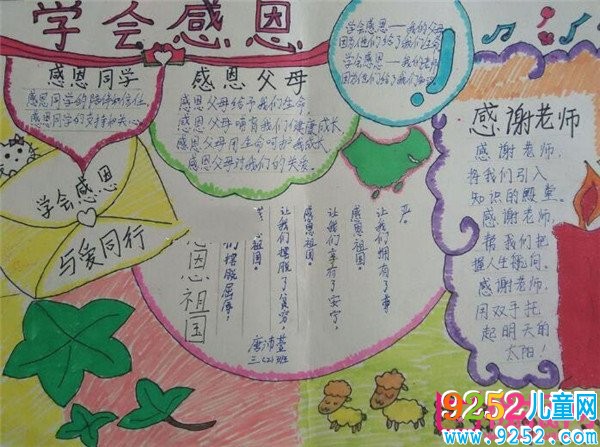 学会感恩
感恩同学
感恩同学的陪伴和信任
感恩同学的支持和关心
感恩父母
感恩父母给予我们生命。
感恩父母哺育我们健康成长
感恩父母用生命呵护我成长
感恩父母对我们的关爱。
学会感恩——我的父母
因为他们给了我们生命
学会感恩——
因为他们给了我们
感谢老师
感谢老师，
将我们引入
知识的殿堂。
感谢老师，
帮我们把
握人生航向。
感谢老师，
用双手托
起明天的
太阳！
学会感恩
与爱同行
恩祖国
严。
让我们拥有了尊
感恩祖国。
让我们享有了安宁，
感恩祖国，
让我们摆脱了贫穷，
祖国。
们摆脱屈辱，
唐沛萱
三、(2)班
9252儿童网
www.9252.com